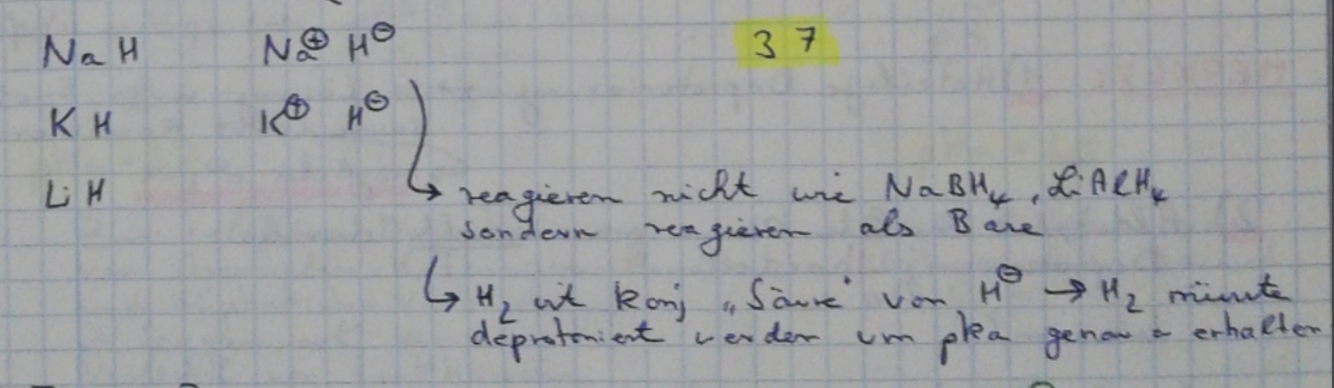 NaH Na⊕ H⊖ 37
KH K⊕ H⊖
LiH ↳ reagieren nicht wie NaBH₄, LiAlH₄
sondern reagieren als Base
↳ H₂ ist konj „Säure" von H⊖ → H₂ müsste
deprotoniert werden um pka genau erhalten